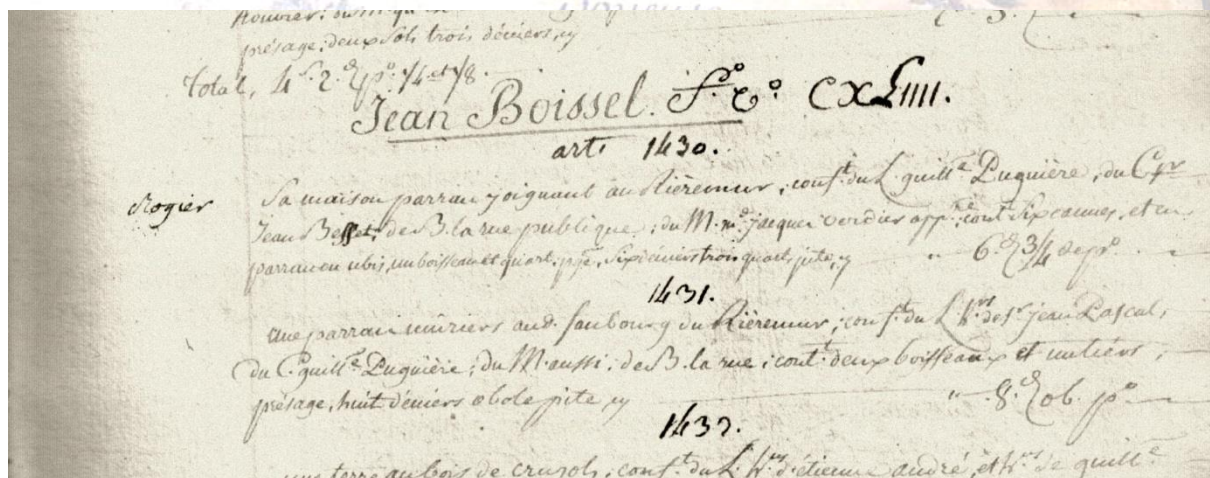 présage, deux sols trois déniers, cy
total, 4 s. 2 d. po. 1/4 et 1/8.
Jean Boissel. fo. vo. CXLIIII.
arte 1430.
Rogier
Sa maison parran joignant au Rièremur, conft. du L. guille. Puguière, du C. pr
Jean Besset, de B. la rue publique, du M. me. jacques verdier app.re cont. Six cannes, et en
parran en ubis, un boisseau et quart, pge. Six déniers trois quarts pite, cy " 6 d. 3/4 de po.
1431.
une parran mûriers aud. faubourg du Rièremur, conft. du L. hrs. de sr. jean Pascal,
du C. guille. Puguière, du M. aussi, de B. la rue, cont. deux boisseaux et un tiérs,
présage, huit déniers obole pite, cy " 8 d. ob. po.
1432.
une terre au bois de crusols, conft. du L. hrs. d'étienne andré, et hrs. de guille.